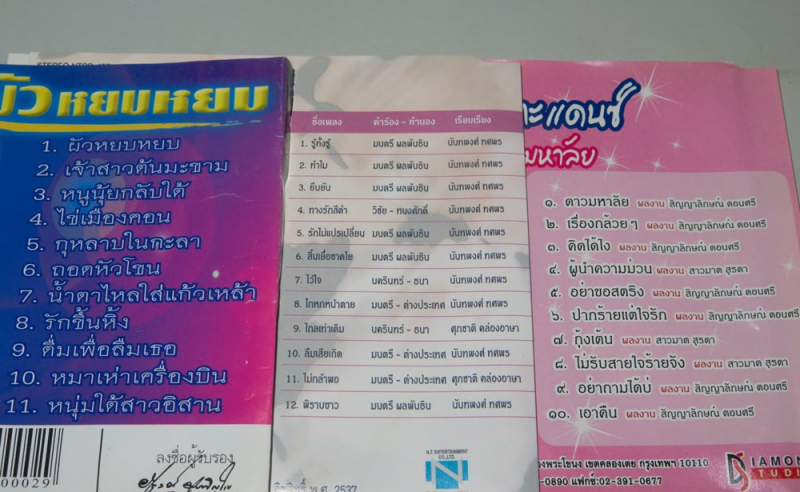 ผัวหยบหยบ
1. ผัวหยบหยบ
2. เจ้าสาวต้นมะขาม
3. หนูนุ้ยกลับใต้
4. ไข่เมืองคอน
5. กุหลาบในกะลา
6. ถอดหัวโขน
7. น้ำตาไหลใส่แก้วเหล้า
8. รักขึ้นหิ้ง
9. ดื่มเพื่อลืมเธอ
10. หมาเห่าเครื่องบิน
11. หนุ่มใต้สาวอิสาน
ลงชื่อผู้รับรอง
00029
ชื่อเพลง คำร้อง - ทำนอง เรียบเรียง
1. รู้ทั้งรู้ มนตรี ผลพันธิน นันทพงศ์ ทศพร
2. ทำไม มนตรี ผลพันธิน นันทพงศ์ ทศพร
3. ยืนยัน มนตรี ผลพันธิน นันทพงศ์ ทศพร
4. ทางรักสีดำ วิชัย - ทนงศักดิ์ นันทพงศ์ ทศพร
5. รักไม่แปรเปลี่ยน มนตรี ผลพันธิน นันทพงศ์ ทศพร
6. สิ้นเยื่อขาดใย มนตรี ผลพันธิน นันทพงศ์ ทศพร
7. ไว้ใจ นครินทร์ - ธนา นันทพงศ์ ทศพร
8. โกหกหน้าตาย มนตรี - ต่างประเทศ นันทพงศ์ ทศพร
9. ไกลเท่าเดิม นครินทร์ - ธนา ศุกชาติ คล่องอาษา
10. ลืมเสียเถิด มนตรี - ต่างประเทศ นันทพงศ์ ทศพร
11. ไม่กล้าพอ มนตรี - ต่างประเทศ ศุกชาติ คล่องอาษา
12. พิราบขาว มนตรี ผลพันธิน นันทพงศ์ ทศพร
N.T. ENTERTAINMENT
CO.,LTD.
พ.ศ. 2537
ะแดนซ์
มหาลัย
๑. ดาวมหาลัย ผลงาน สัญญาลักษณ์ ดอนศรี
๒. เรื่องกล้วยๆ ผลงาน สัญญาลักษณ์ ดอนศรี
๓. คิดได้ไง ผลงาน สัญญาลักษณ์ ดอนศรี
๔. ผู้นำความม่วน ผลงาน สาวมาด สุรดา
๕. อย่าขอสตริง ผลงาน สัญญาลักษณ์ ดอนศรี
๖. ปากร้ายแต่ใจรัก ผลงาน สัญญาลักษณ์ ดอนศรี
๗. กุ้งเต้น ผลงาน สาวมาด สุรดา
๘. ไม่รับสายใจร้ายจัง ผลงาน สาวมาด สุรดา
๙. อย่าถามได้บ่ ผลงาน สัญญาลักษณ์ ดอนศรี
๑๐. เอาคืน ผลงาน สัญญาลักษณ์ ดอนศรี
พระโขนง เขตคลองเตย กรุงเทพฯ 10110
-0890 แฟกซ์:02-391-0677
DIAMON
STUDI